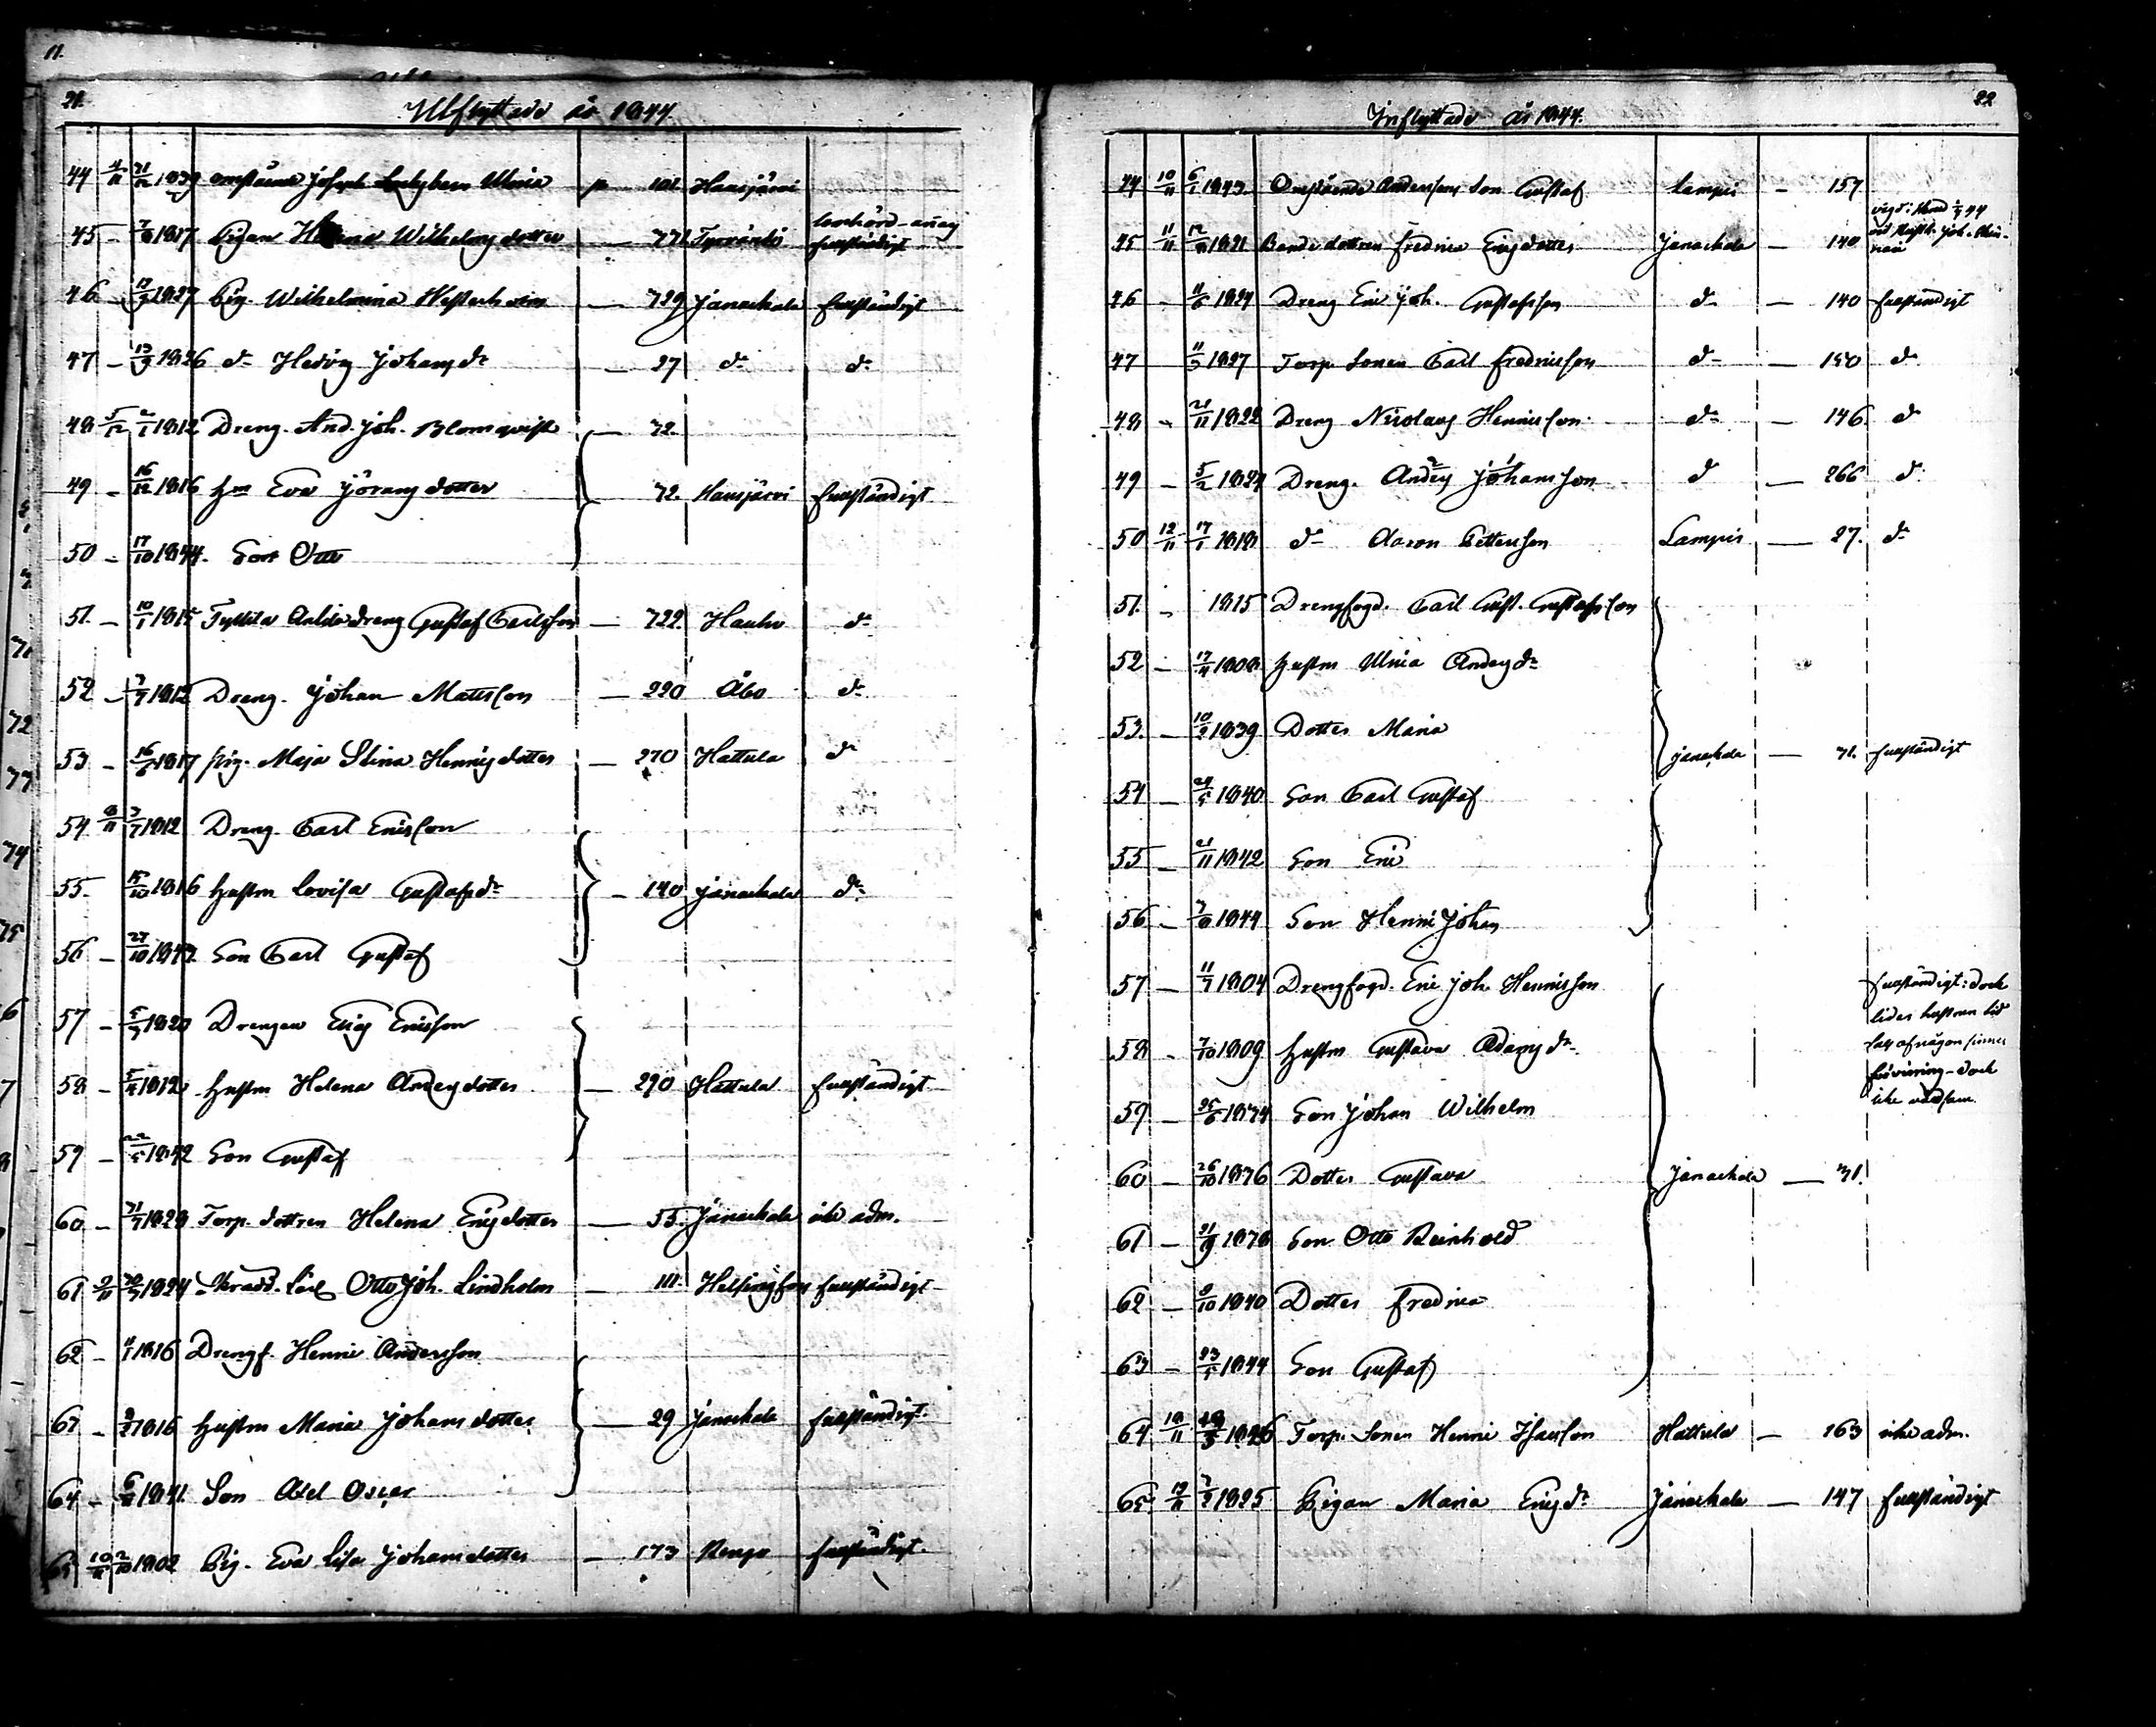 11.
21.
Utflyttade år 1844
44 4/11 31/12 1839 omstående Joseph Ulrica p 101 Hausjärvi
45 – 7/8 1817 Pigan Helena Wilhelmsdotter — 771 Tyrväntö fullständigt
46 – 1827 Pig. Wilhelmina — 729 Janackala fullständigt
47 – 13/9 1826 do Hedvig Johansdr — 27 do do
48 5/12 2/1 1812 Dreng. And. Joh. Blomqvist — 72.
49 – 16/12 1816 hm Eva Jöransdotter 72. Hausjärvi fullständigt
50 – 17/10 1844. Son Otto
51. – 10/1 1815 dreng Gustaf Carlsson — 722. Hauho do
52 – 7/7 1812 Dreng. Johan Mattsson — 220 Åbo do
53 – 16/6 1817 pig. Maja Stina Henricsdotter — 270 Hattula do
54 8/11 3/7 1812 Dreng. Carl Ericsson
55. 15/10 1816 hustru Lovisa Gustafsdr — 140 Janackala do
56 – 27/10 1843 Son Carl Gustaf
57 – 5/7 1820 Drengen Elias Ericsson
58 – 5/4 1812 hustru Helena Andersdotter — 290 Hattula fullständigt
59 – 22/5 1842 Son Gustaf
60 – 31/7 1829 Torp. dottren Helena Ericsdotter — 55. Janackala icke adm.
61 9/11 30/7 1824 Otto Joh. Lindholm — 111. Helsingfors fullständigt
62 – 11/1 1816 Drengf. Henric Andersson
63 – 9/2 1816 hustru Maria Johansdotter — 29 Janackala fullständigt.
64 – 6/8 1841. Son Axel Oscar
65 10/11 2/10 1802 Pig. Eva Lisa Johansdotter — 173 Rengo fullständigt.
22
Inflyttade år 1844.
44 10/11 6/1 1843 Omstående Anderssons Son Gustaf Lampis – 157
45 11/11 12/8 1821 Bonde dottren Fredrica Ericsdotter Janackala – 140
46 – 11/6 1824 Dreng Eric Joh. Gustafsson do — 140 fullständigt
47 11/3 1827 Torp. Sonen Carl Fredricsson do — 140 do
48 – 21/11 1822 Dreng Nicolaus Henricsson do — 146. do
49 – 5/2 1824 Dreng. Anders Johansson do — 266 do
50 12/11 17/1 1818 do Aaron Pettersson Lampis — 27. do
51. – 1815 Drengfogd. Carl Gust. Gustafsson
52 – 17/4 1808 hustru Ulrica Andersdr
53. – 10/2 1839 Dotter Maria Janackala — 31. fullständigt
54 – 24/5 1840 Son Carl Gustaf
55 – 21/11 1842 Son Eric
56 – 7/8 1844 Son Henric Johan
57 – 11/7 1804 Drengfogd. Eric Joh. Henricsson fullständigt: dock
lider hustrun tid
58. – 7/10 1809 hustru Gustava Adamsdr tals af någon sinnes
förvirring – dock
59 – 25/6 1834 Son Johan Wilhelm icke våldsam
60 – 26/10 1836 Dotter Gustava Janackala — 31.
61 – 21/9 1838 Son Otto Reinhold
62 – 8/10 1840 Dotter Fredrica
63 – 23/5 1844 Son Gustaf
64 18/11 1826 Torp. Sonen Henric Isacsson Hattula — 163 icke adm.
65 19/11 7/2 1825 Pigan Maria Ericsdr Janackala — 147 fullständigt